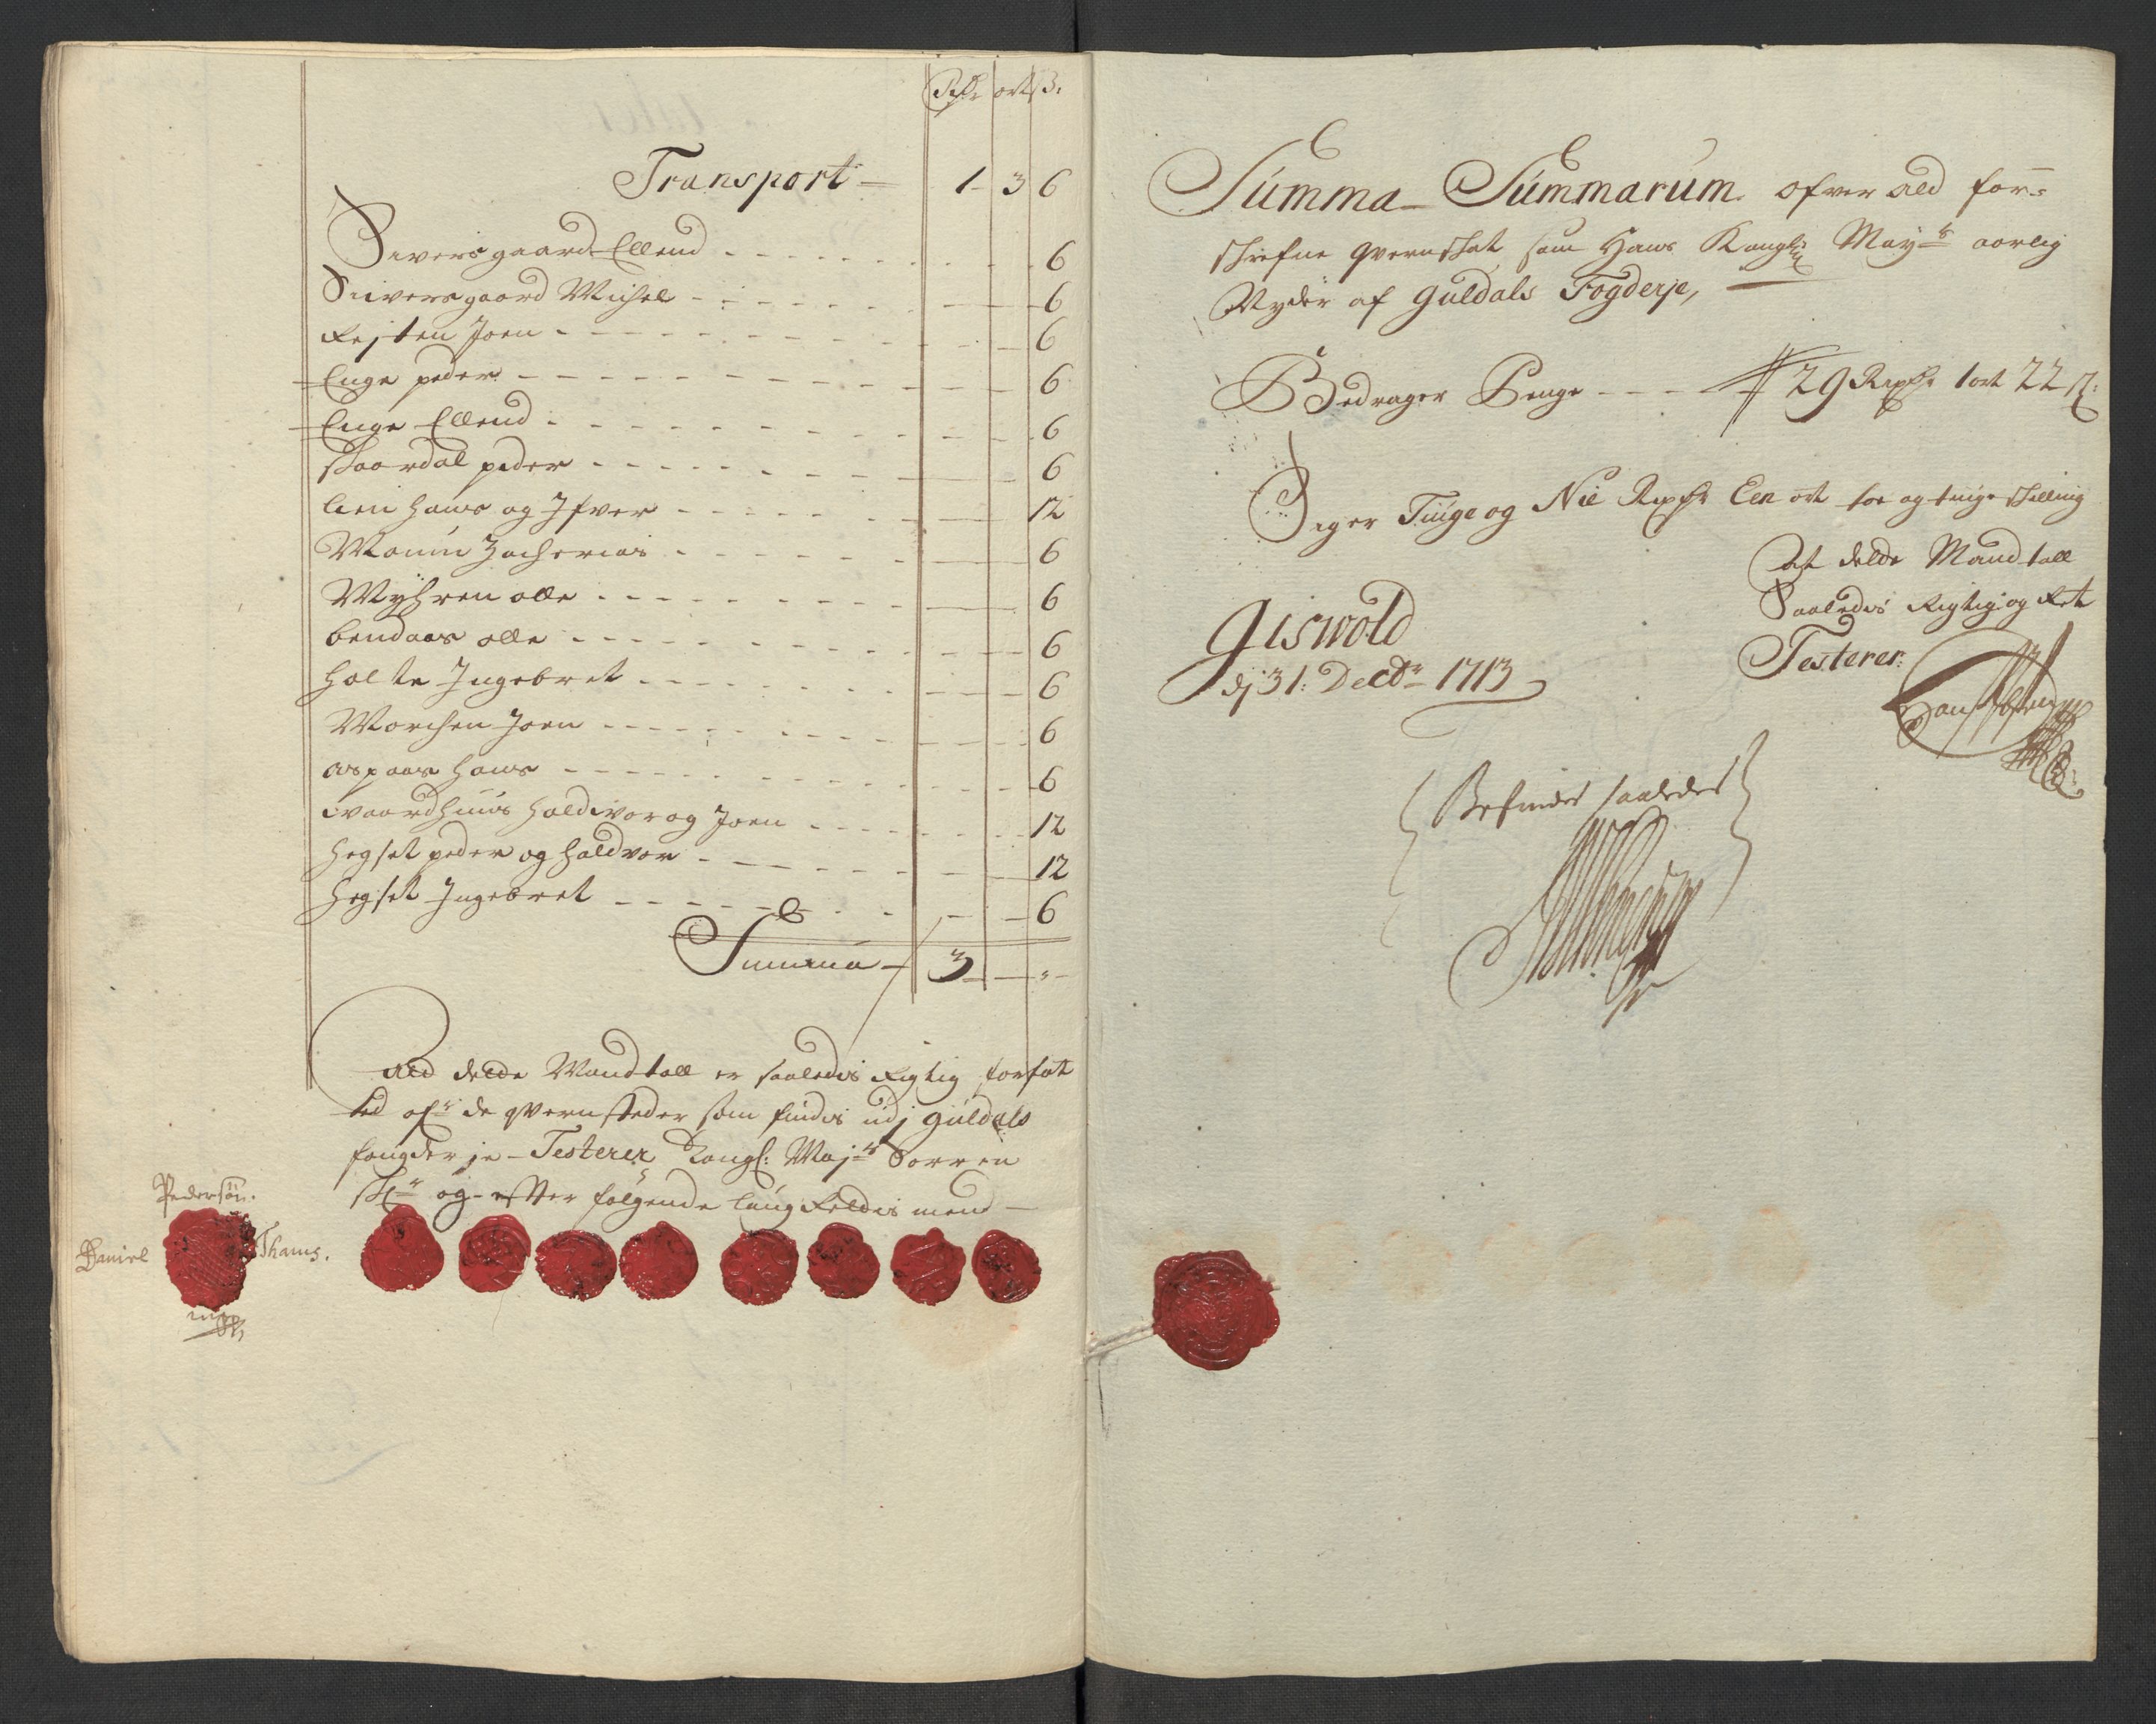 Rdr ort ß:
Transport 1 3 6
Siversgaard Ellend 6
Siiversgaard Michel 6
Rejten Joen 6
Enge peder 6
Enge Ellend 6
skaardal peder 6
Lien hans og Ifver 12
Moum Zacherias 6
Myhren olle 6
bendaas olle 6
holte Ingebret 6
Morchen Joen 6
aspaas hans 6
waardhuus haldvor og Joen 12
hegset peder og haldvor 12
hegset Ingebret 6
Summa 3
Ald dette Mandtall er saaledis Rigtig forfat
ted ofr de qvernsteder som findis udj Guldals
fougderje Testerer Kongl: Majts Sorren
skr og efter følgende laug Rettis mend
Pedersøn.
Daniel Thams.
Summa Summarum ofver ald for:
skrefne qvernskat som Hans Kongl: Mayts aarlig
Nyder af Guldals Fogderje,
Bedrager Penge 29 Rixdr 1 ort 22 ß:
Siger Tiuge og Nie Rixdr Een ort toe og tiuge skilling
At dette Mandtall
Saaledis Rigtig og Ret
Testerer:
Giswold
dj 31: Decbr 1713
Befindes saaledes